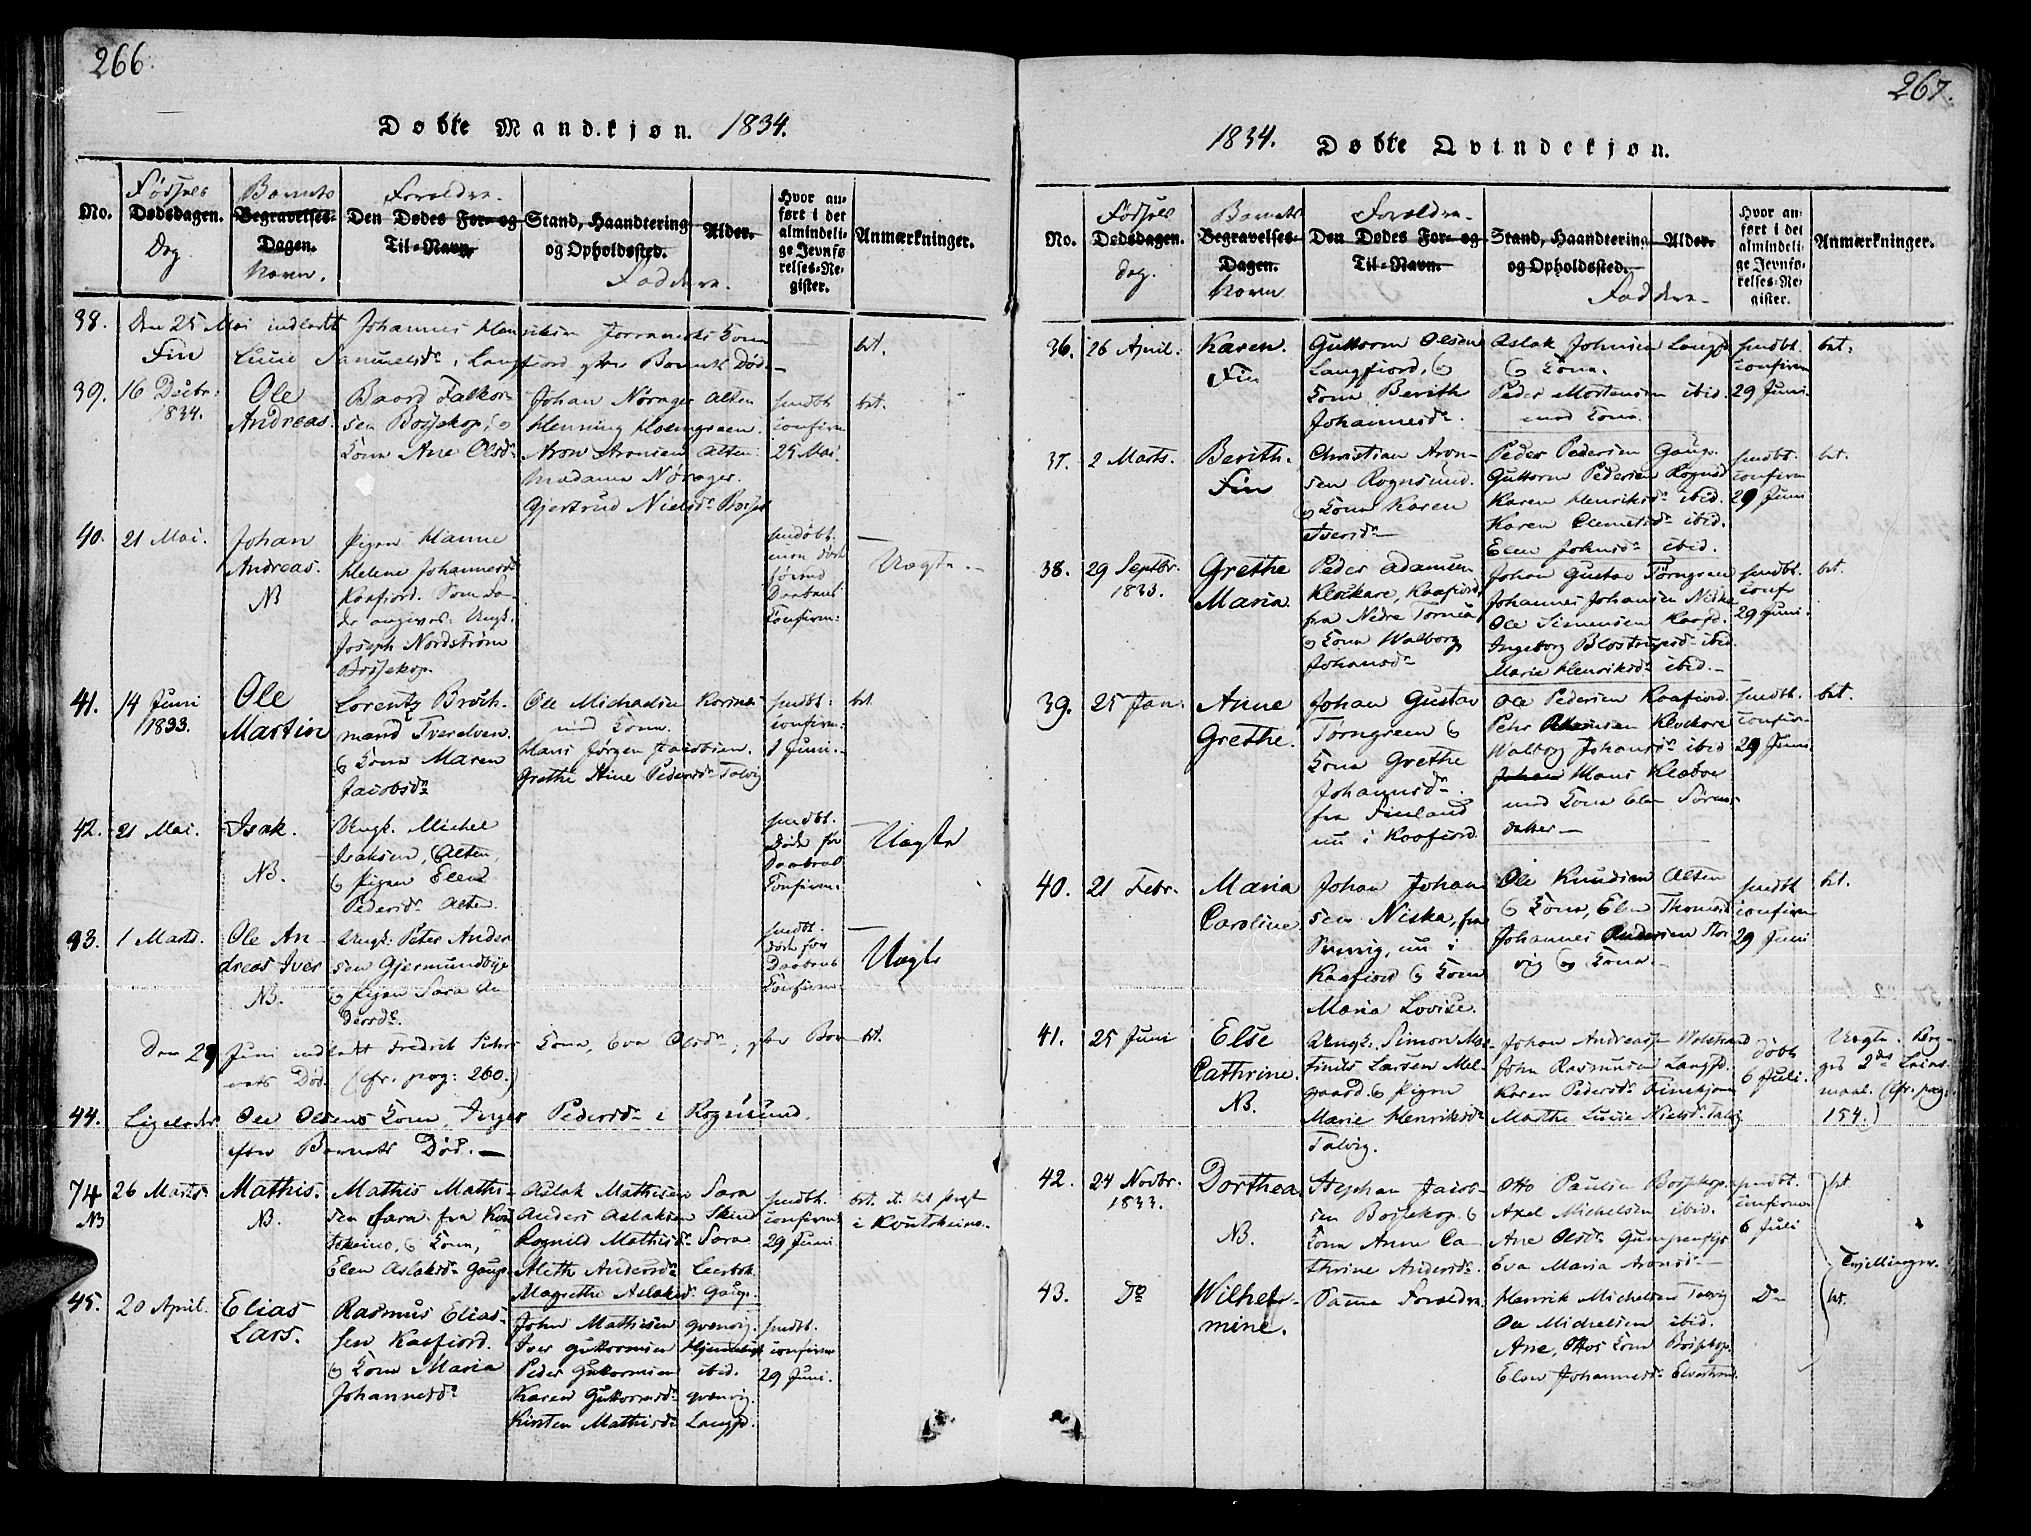 266.
Døbte Mandkjøn. 1834.
No.
Fødsels
Dødsdagen.
Dag
Barnets
Begravelses-
Dagen.
Navn.
Forældre.
Den Dødes For- og
Til-Navn.
Stand, Haandtering
og Opholdssted.
Faddere.
Alder.
Hvor an-
ført i det
almindeli-
ge Jevnfø-
relses-Re-
gister.
Anmærkninger.
38. Den 25 Mai indledt Johannes Henriksen Kone
Fin
Lucie Samuelsdr i Langfjord efter Barnets Død.
bet.
39. 16 Decbr:
1834.
Ole
Andreas.
Baard Falkor-
sen Bossekop, og
Kone Ane Olsdr
Johan Norager Alten
Henning Holmgreen
Aron Aronsen Alten
Madame Norager.
Gjertrud Nielsdr Bossk
hmdbt.
confirm
25 Mai.
bet.
40. 21 Mai.
Johan
Andreas.
NB
Pigen Hanne
Helene Johannesdr
Kaafjord. Som Fa-
der angives: Ungk.
Joseph Nordstrøm
Bossekop.
hmdøbt
men død
førend
Daabens
Confirm:
Uægte.
41. 14 Juni
1833.
Ole
Martin
Lorentz Broch-
mand Tverelven
og Kone Maren
Jacobsdr
Ole Michaelsen
med Kone.
Hans Jørgen Jacobsen.
Grethe Stine Pedersdr Talvig
hmdbt:
confirm:
1 Juni.
bet
42. 21 Mai.
Isak.
NB.
Ungk. Michel
Isaksen, Alten,
og Pigen Elen
Pedersdr Alten.
hmdbt.
Døde før
Daabens
Confirm:
Uægte
43. 1 Marts.
Ole An-
dreas Iver
NB.
Ungk: Peter Ander
sen Gjermundbye
og Pigen Sara An
dersdr.
hmdbt.
Døde før
Daabens
Confirm:
Uægte
Den 29 Juni indledt Fredrik Kone, Eva Olsdr, efter Bar-
nets Død. (cfr. pag: 260.)
bt.
44. Ligeledes Ole Olsens Kone, Inger Pedersdr i Rognsund,
efter Barnets Død.
74
NB
26 Marts
Mathis.
NB.
Mathis Mathi-
sen Sara fra Kou
tokeino, og Kone,
Elen Aslaksdr Gaup.
Aslak Mathisen Sara
Anders Aslaksen Skind
Rognild Mathisdr Sara
Aleth Andersdr
Magrethe Aslaksdr Gaup.
hmdbt.
confirm:
29 Juni
bet. til
i Koutokeino.
45. 20 April.
Elias
Lars.
Rasmus Elias-
sen Kaafjord.
og Kone Maria
Johannesdr
John Mathisen qvænvig.
Iver Guttormsen
Peder Guttormsen ibid.
Karen Guttormsdr qvænvig.
Kirsten Mathisdr Langfd.
hmdbt.
confirm
29 Juni.
267.
1834. Døbte Qvindekjøn.
No.
Fødsels
Dødsdagen.
dag.
Barnets
Begravelses-
Dagen.
Navn
Forældre.
Den Dødes For- og
Til-Navn.
Stand, Haandtering
og Opholdssted.
Faddere.
Alder.
Hvor an-
ført i det
almindeli-
ge Jevnfø-
relses-Re-
gister.
Anmærkninger.
36. 26 April.
Karen.
Fin
Guttorm Olsen
Langfjord, og
Kone Berith
Johannesdr.
Aslak Johnsen Langfd
og Kone.
Peder Mortensen ibid.
med Kone.
hmdbt.
confirm
29 Juni.
bet.
37. 2 Marts.
Berith.
Fin
Christian Aron-
sen Rognsund.
og Kone Karen
Iversdr
Peder Pedersen Gaup.
Guttorm Pedersen Rognsd
Karen Henriksdr ibid.
Karen Clemetsdr ibid.
Elen Johnsdr ibid.
hmdbt
confirm
29 Juni
bet.
38. 29 Septbr.
1833.
Grethe
Maria
Peder Adamsen
Klockare, Kaafjord,
fra Nedre Torneå
og Kone Walborg
Johansdr
Johan Gustav Törngreen
Johannes Johansen Niska
Ole Simensen Kaafd.
Ingeborg ibid.
Marie Henriksdr ibid.
hmdbt.
conf
29 Juni.
bet.
39. 25 Jan:
Anne
Grethe.
Johan Gustav
Törngreen og
Kone Grethe
Johannsdr.
fra Finland
nu i Kaafjord
Ole Pedersen Kaafjord.
Pehr Klockare
Walborg Johansdr ibid
Johan Hans Kleboe
med Kone Elen Søren-
datter
hmdbt.
confirm
29 Juni
bet.
40. 21 Febr.
Maria
Caroline
Johan Johan
sen Niska, fra
Sverrig, nu i
Kaafjord og Kone
Maria Lovise.
Ole Knudsen Alten
og Kone, Elen Thomasd
Johannes Andersen Stor
vig og Kone.
hmdbt
confirm
29 Juni
bet.
41. 25 Juni
Else
Cathrine.
NB.
Ungk. Simon Mar-
tinus Larsen Mel-
gaard og Pigen
Marie Henriksdr
Talvig.
Johan Andreas Wolstrand
John Rasmusen Langfd.
Karen Pedersdr Finskjon
Marthe Lucie Nielsdr Talvig
døbt
6 Juli.
Uægte. Beg-
ges 2de Leier-
maal. (cfr. pag:
154.)
42. 24 Novbr.
1833.
Dorthea
NB.
Stephan Jacob-
sen Bossekop. og
Kone Anne Ca-
thrine Andersdr.
Otto Paulsen Bossekop.
Axel Michelsen ibid.
Ane Olsdr
Eva Maria Aronsdr
hmdbt.
confirm
6 Juli
bt
Tvillinger.
43. Do
Wilhel-
mine.
Samme Forældre.
Henrik Michelsen Talvig
Ole Michelsen ibid.
Ane, Ottos Kone Bossekop.
Elen Johannesdr Elvestrand.
Do
bt.